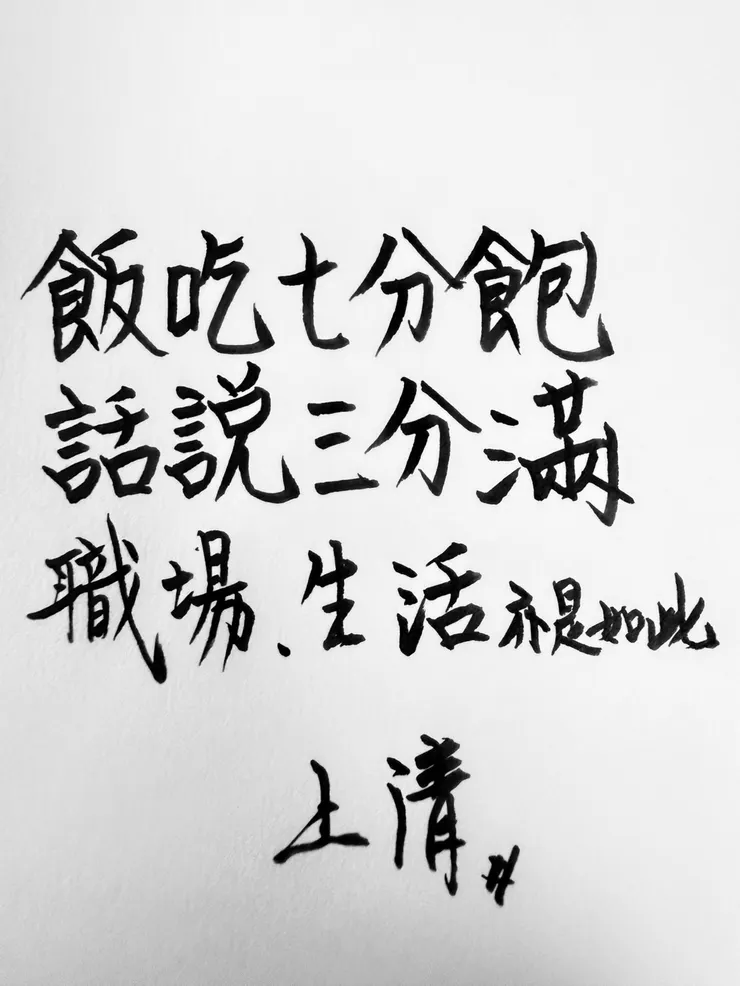 飯吃七分飽
話說三分滿
職場、生活亦是如此
上清